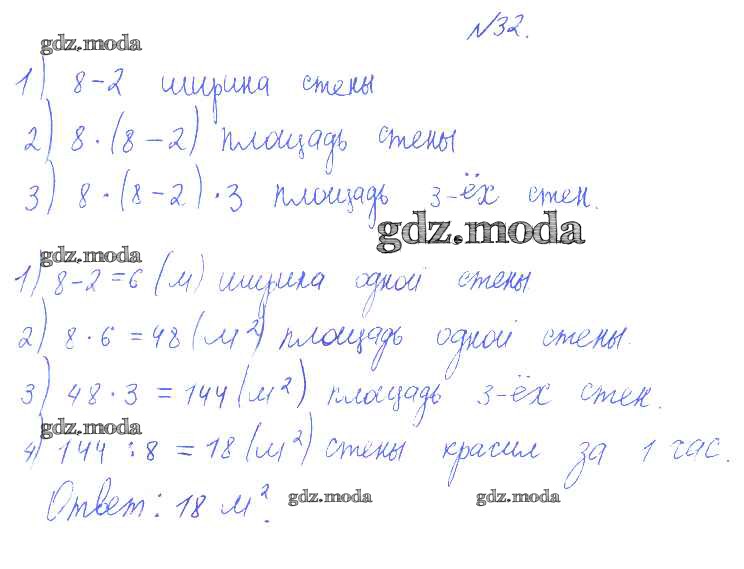 №32.
gdz.moda
1) 8-2 ширина стены
2) 8·(8-2) площадь стены
3) 8·(8-2)·3 площадь 3-ёх стен.
gdz.moda
gdz.moda
1) 8-2=6 (м) ширина одной стены
2) 8·6=48 (м²) площадь одной стены.
3) 48·3=144 (м²) площадь 3-ёх стен.
gdz.moda
4) 144:8=18 (м²) стены красил за 1 час.
Ответ: 18 м².
gdz.moda gdz.moda